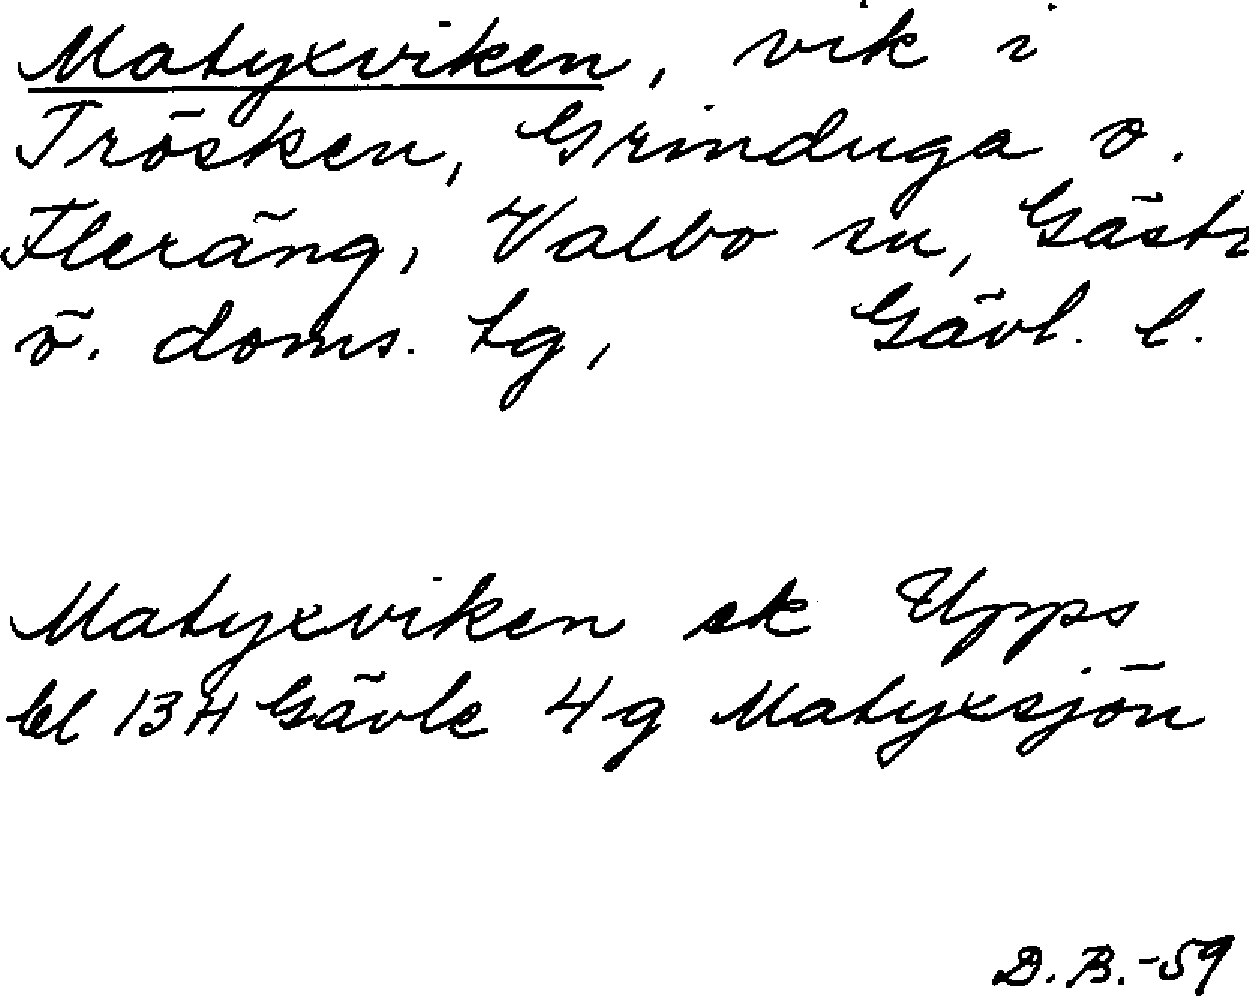 Matyxviken, vik i
Trösken, Grinduga o.
Fleräng, Valbo sn, Gästr
ö. doms. tg, Gävl. l.
Matyxviken ek Upps
bl 13H Gävle 4g Matyxsjön
D.B.-59